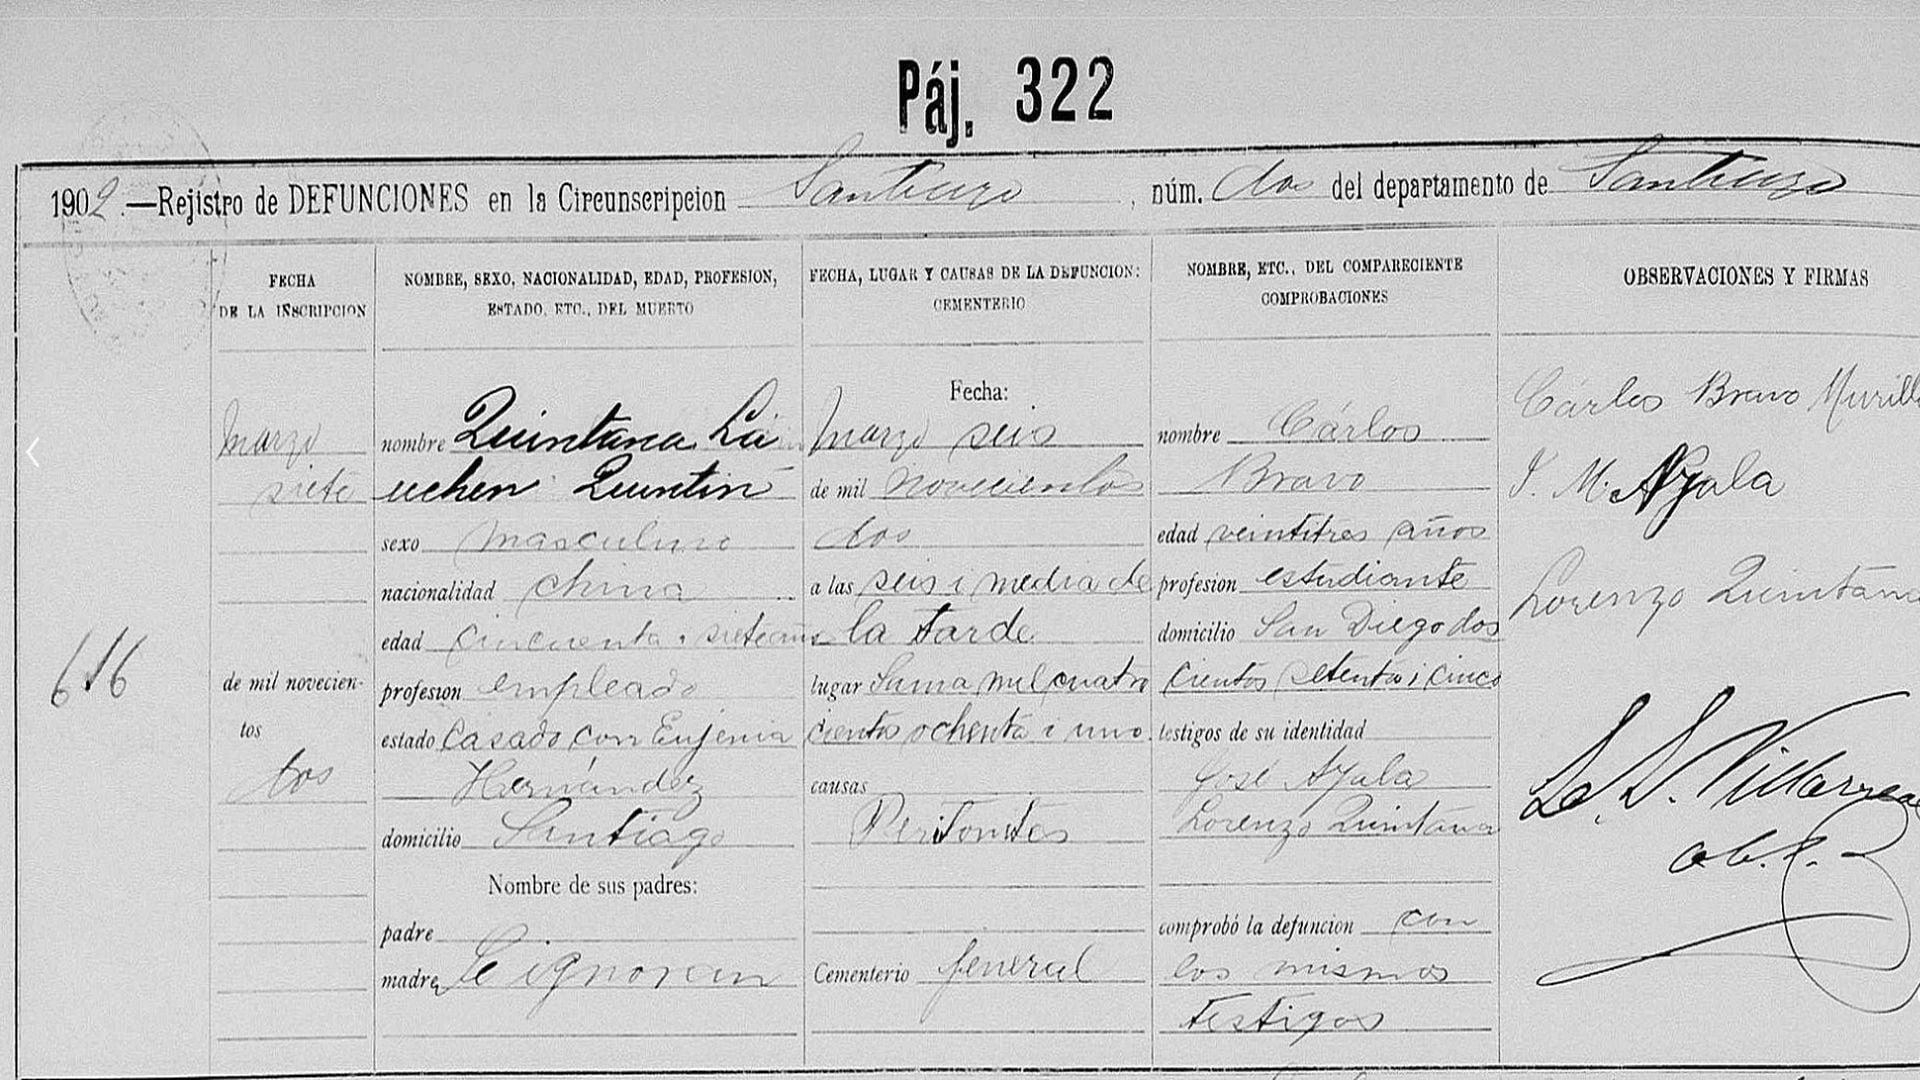 Páj. 322
1902.—Rejistro de DEFUNCIONES en la Circunscripcion Santiago, núm. dos del departamento de Santiago
FECHA
DE LA INSCRIPCION
NOMBRE, SEXO, NACIONALIDAD, EDAD, PROFESION,
ESTADO, ETC., DEL MUERTO
FECHA, LUGAR Y CAUSAS DE LA DEFUNCION:
CEMENTERIO
NOMBRE, ETC., DEL COMPARECIENTE
COMPROBACIONES
OBSERVACIONES Y FIRMAS
616
Marzo
siete
de mil novecien-
tos
dos
nombre Quintana La
uchen Quintin
sexo masculino
nacionalidad china
edad cincuenta i siete años
profesion empleado
estado Casado con Eujenia
Hernández
domicilio Santiago
Nombre de sus padres:
padre
madre Se ignoran
Fecha:
Marzo seis
de mil novecientos
dos
a las seis i media de
la tarde
lugar Sama mil cuatro
cientos ochenta i uno
causas
Peritonitis
Cementerio Jeneral
nombre Cárlos
Bravo
edad veintitres años
profesion estudiante
domicilio San Diego dos
cientos setenta i cinco
testigos de su identidad
José Ayala
Lorenzo Quintana
comprobó la defuncion con
los mismos
testigos
Cárlos Bravo Murillo
J. M. Ayala
Lorenzo Quintana